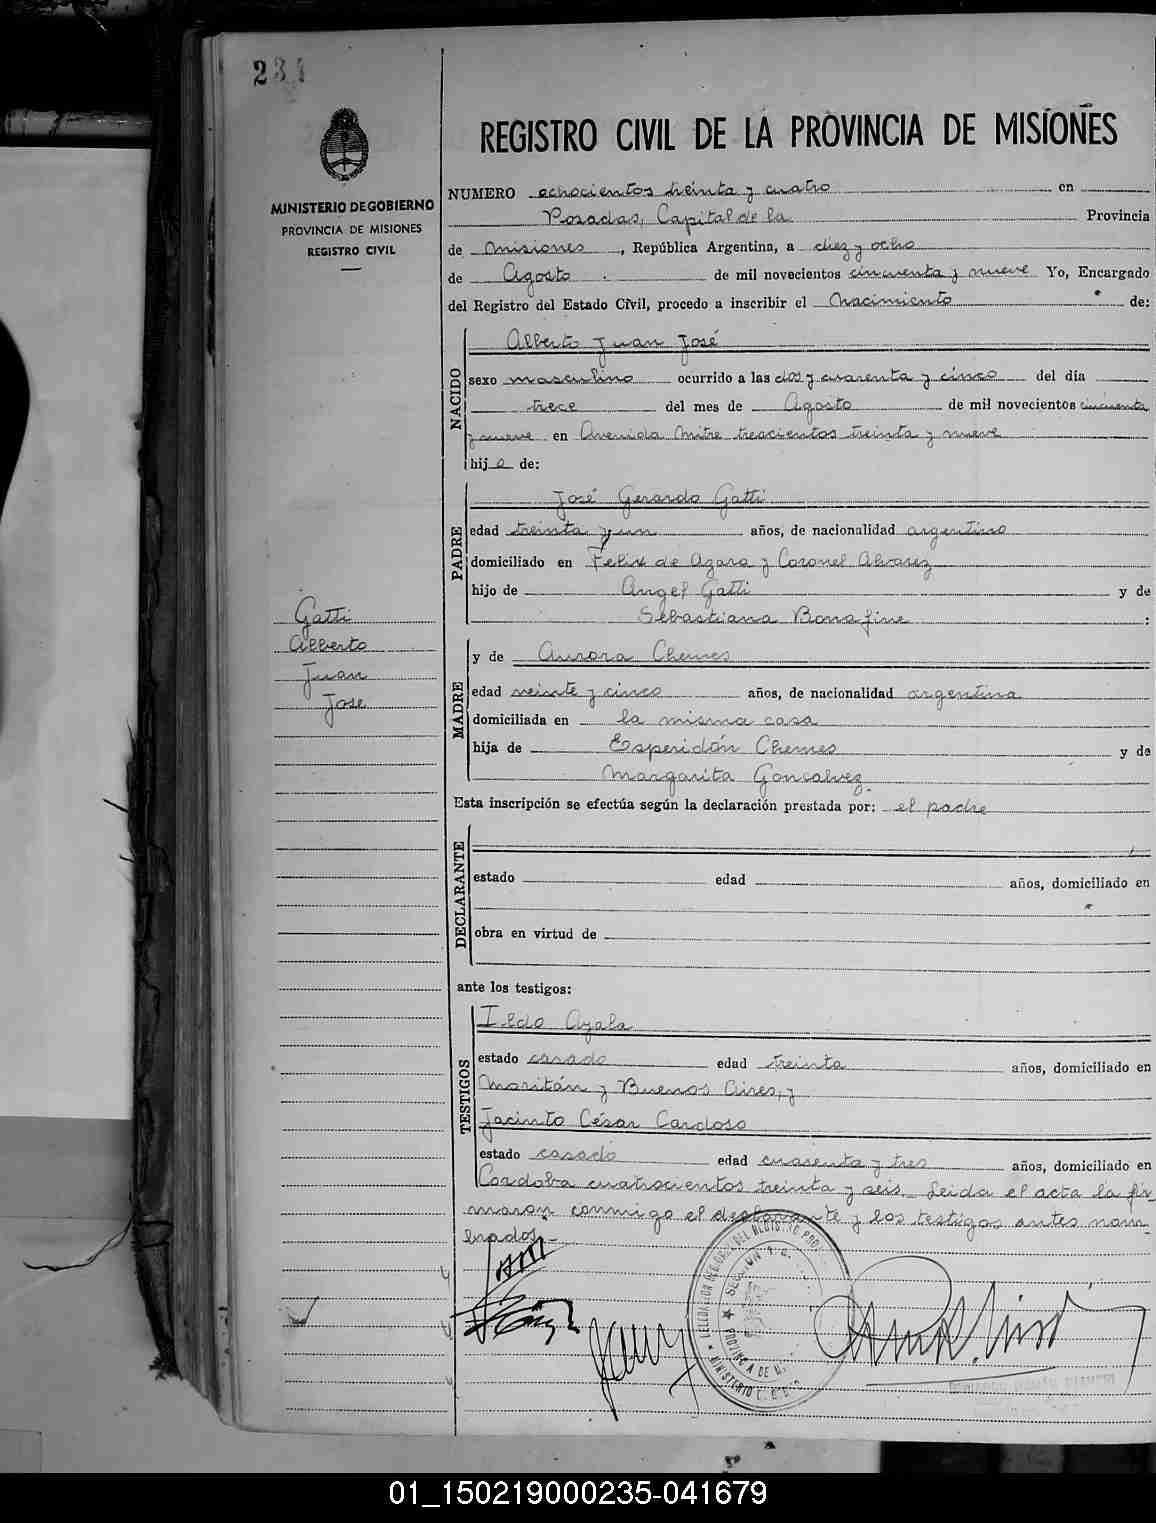 234
REGISTRO CIVIL DE LA PROVINCIA DE MISIONES
MINISTERIO DE GOBIERNO
PROVINCIA DE MISIONES
REGISTRO CIVIL
NUMERO ochocientos treinta y cuatro en
Posadas, Capital de la Provincia
de Misiones, República Argentina, a diez y ocho
de Agosto de mil novecientos cincuenta y nueve Yo, Encargado
del Registro del Estado Civil, procedo a inscribir el Nacimiento de:
NACIDO
Alberto Juan José
sexo masculino ocurrido a las dos y cuarenta y cinco del día
trece del mes de Agosto de mil novecientos cincuenta
y nueve en Avenida Mitre trescientos treinta y nueve
hijo de:
PADRE
José Gerardo Gatti
edad treinta y un años, de nacionalidad argentino
domiciliado en Felix de Azara y Coronel Alvarez
hijo de Angel Gatti y de
Sebastiana Bonafine :
Gatti
Alberto
Juan
Jose
MADRE
y de Aurora Chemes
edad veinte y cinco años, de nacionalidad argentina
domiciliada en la misma casa
hija de Esperidón Chemes y de
Margarita Goncalvez.
Esta inscripción se efectúa según la declaración prestada por: el padre
DECLARANTE
estado edad años, domiciliado en
obra en virtud de
ante los testigos:
TESTIGOS
Ildo Ayala
estado casado edad treinta años, domiciliado en
Maritán y Buenos Aires, y
Jacinto César Cardoso
estado casado edad cuarenta y tres años, domiciliado en
Cordoba cuatrocientos treinta y seis. Leida el acta la fir-
maron conmigo el declarante y los testigos antes nom-
brados.-
01_150219000235-041679